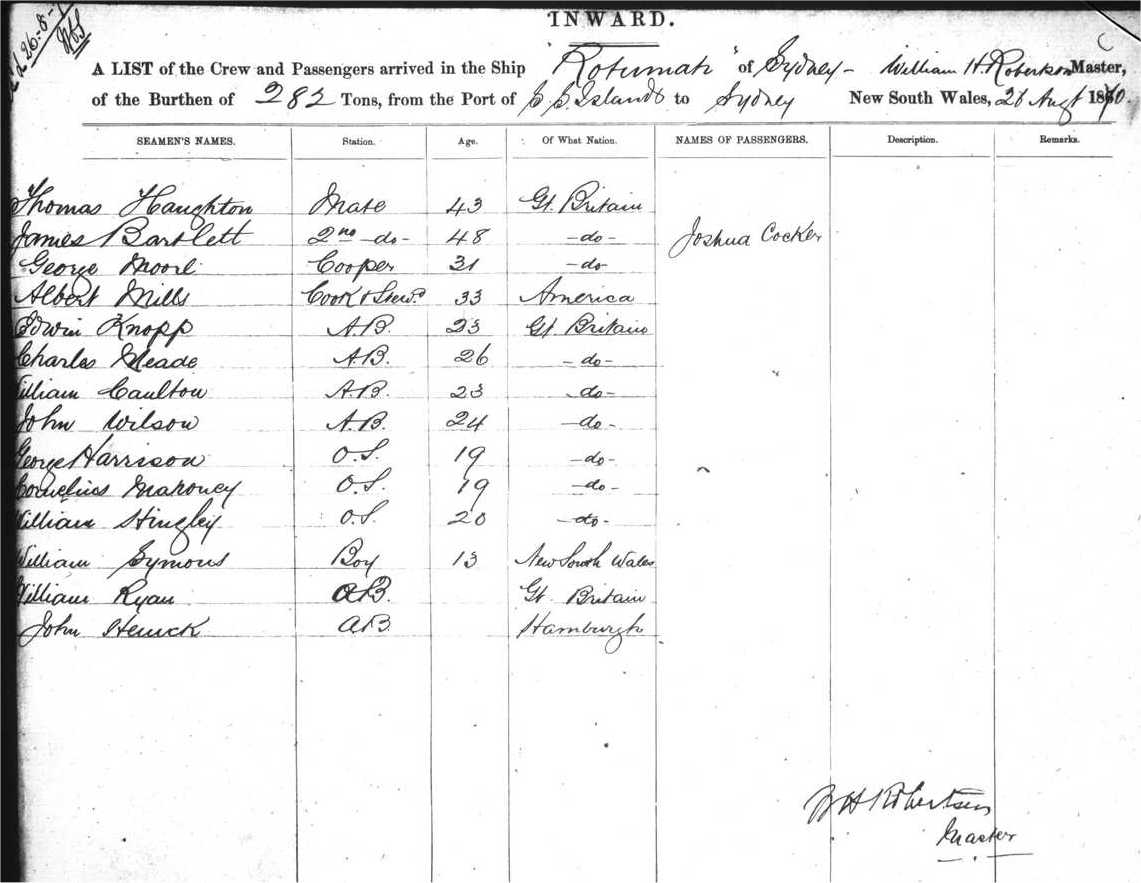 26-8-
INWARD.
A LIST of the Crew and Passengers arrived in the Ship Rotumah" of Sydney - William H. Robertson Master,
of the Burthen of 282 Tons, from the Port of S. S. Islands to Sydney New South Wales, 26 Augt 1870.
SEAMEN'S NAMES. Station. Age. Of What Nation. NAMES OF PASSENGERS. Description. Remarks.
Thomas Haughton Mate 43 Gt. Britain
James Bartlett 2nd -do- 48 -do- Joshua Cocker
George Moore Cooper 31 -do-
Albert Mills Cook & Stewd 33 America
Edwin Knopp A.B. 23 Gt. Britain
Charles Meade A.B. 26 -do-
William Caulton A.B. 23 -do-
John Wilson A.B. 24 -do-
George Harrison O.S. 19 -do-
Cornelius Mahoney O.S. 19 -do-
William Hingley O.S. 20 -do-
William Symons Boy 13 New South Wales
William Ryan A.B. Gt. Britain
John A.B. Hamburgh
W H Robertson
Master